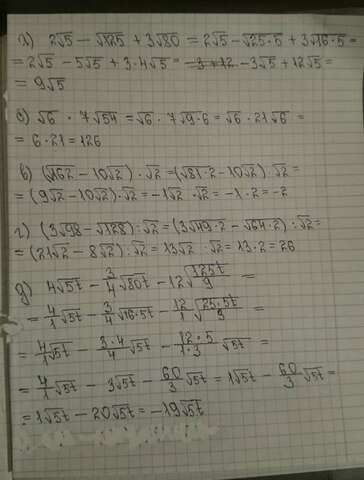 а) 2√5 − √125 + 3√80 = 2√5 − √25·5 + 3√16·5 =
= 2√5 − 5√5 + 3·4√5 = −3+12 −3√5 + 12√5 =
= 9√5
с) √6 · 7√54 = √6 · 7√9·6 = √6 · 21√6 =
= 6·21 = 126
в) (√162 − 10√2) · √2 = (√81·2 − 10√2) · √2 =
= (9√2 − 10√2) · √2 = −1√2 · √2 = −1·2 = −2
г) (3√98 − √128) : √2 = (3√49·2 − √64·2) : √2 =
= (21√2 − 8√2) : √2 = 13√2 : √2 = 13·2 = 26
д) 4√5t − 3/4 √80t − 12√125t/9 =
= 4/1 √5t − 3/4 √16·5t − 12/1 √25·5t/9 =
= 4/1 √5t − 3·4/4 √5t − 12·5/1·3 √5t =
= 4/1 √5t − 3√5t − 60/3 √5t = 1√5t − 60/3 √5t =
= 1√5t − 20√5t = −19√5t